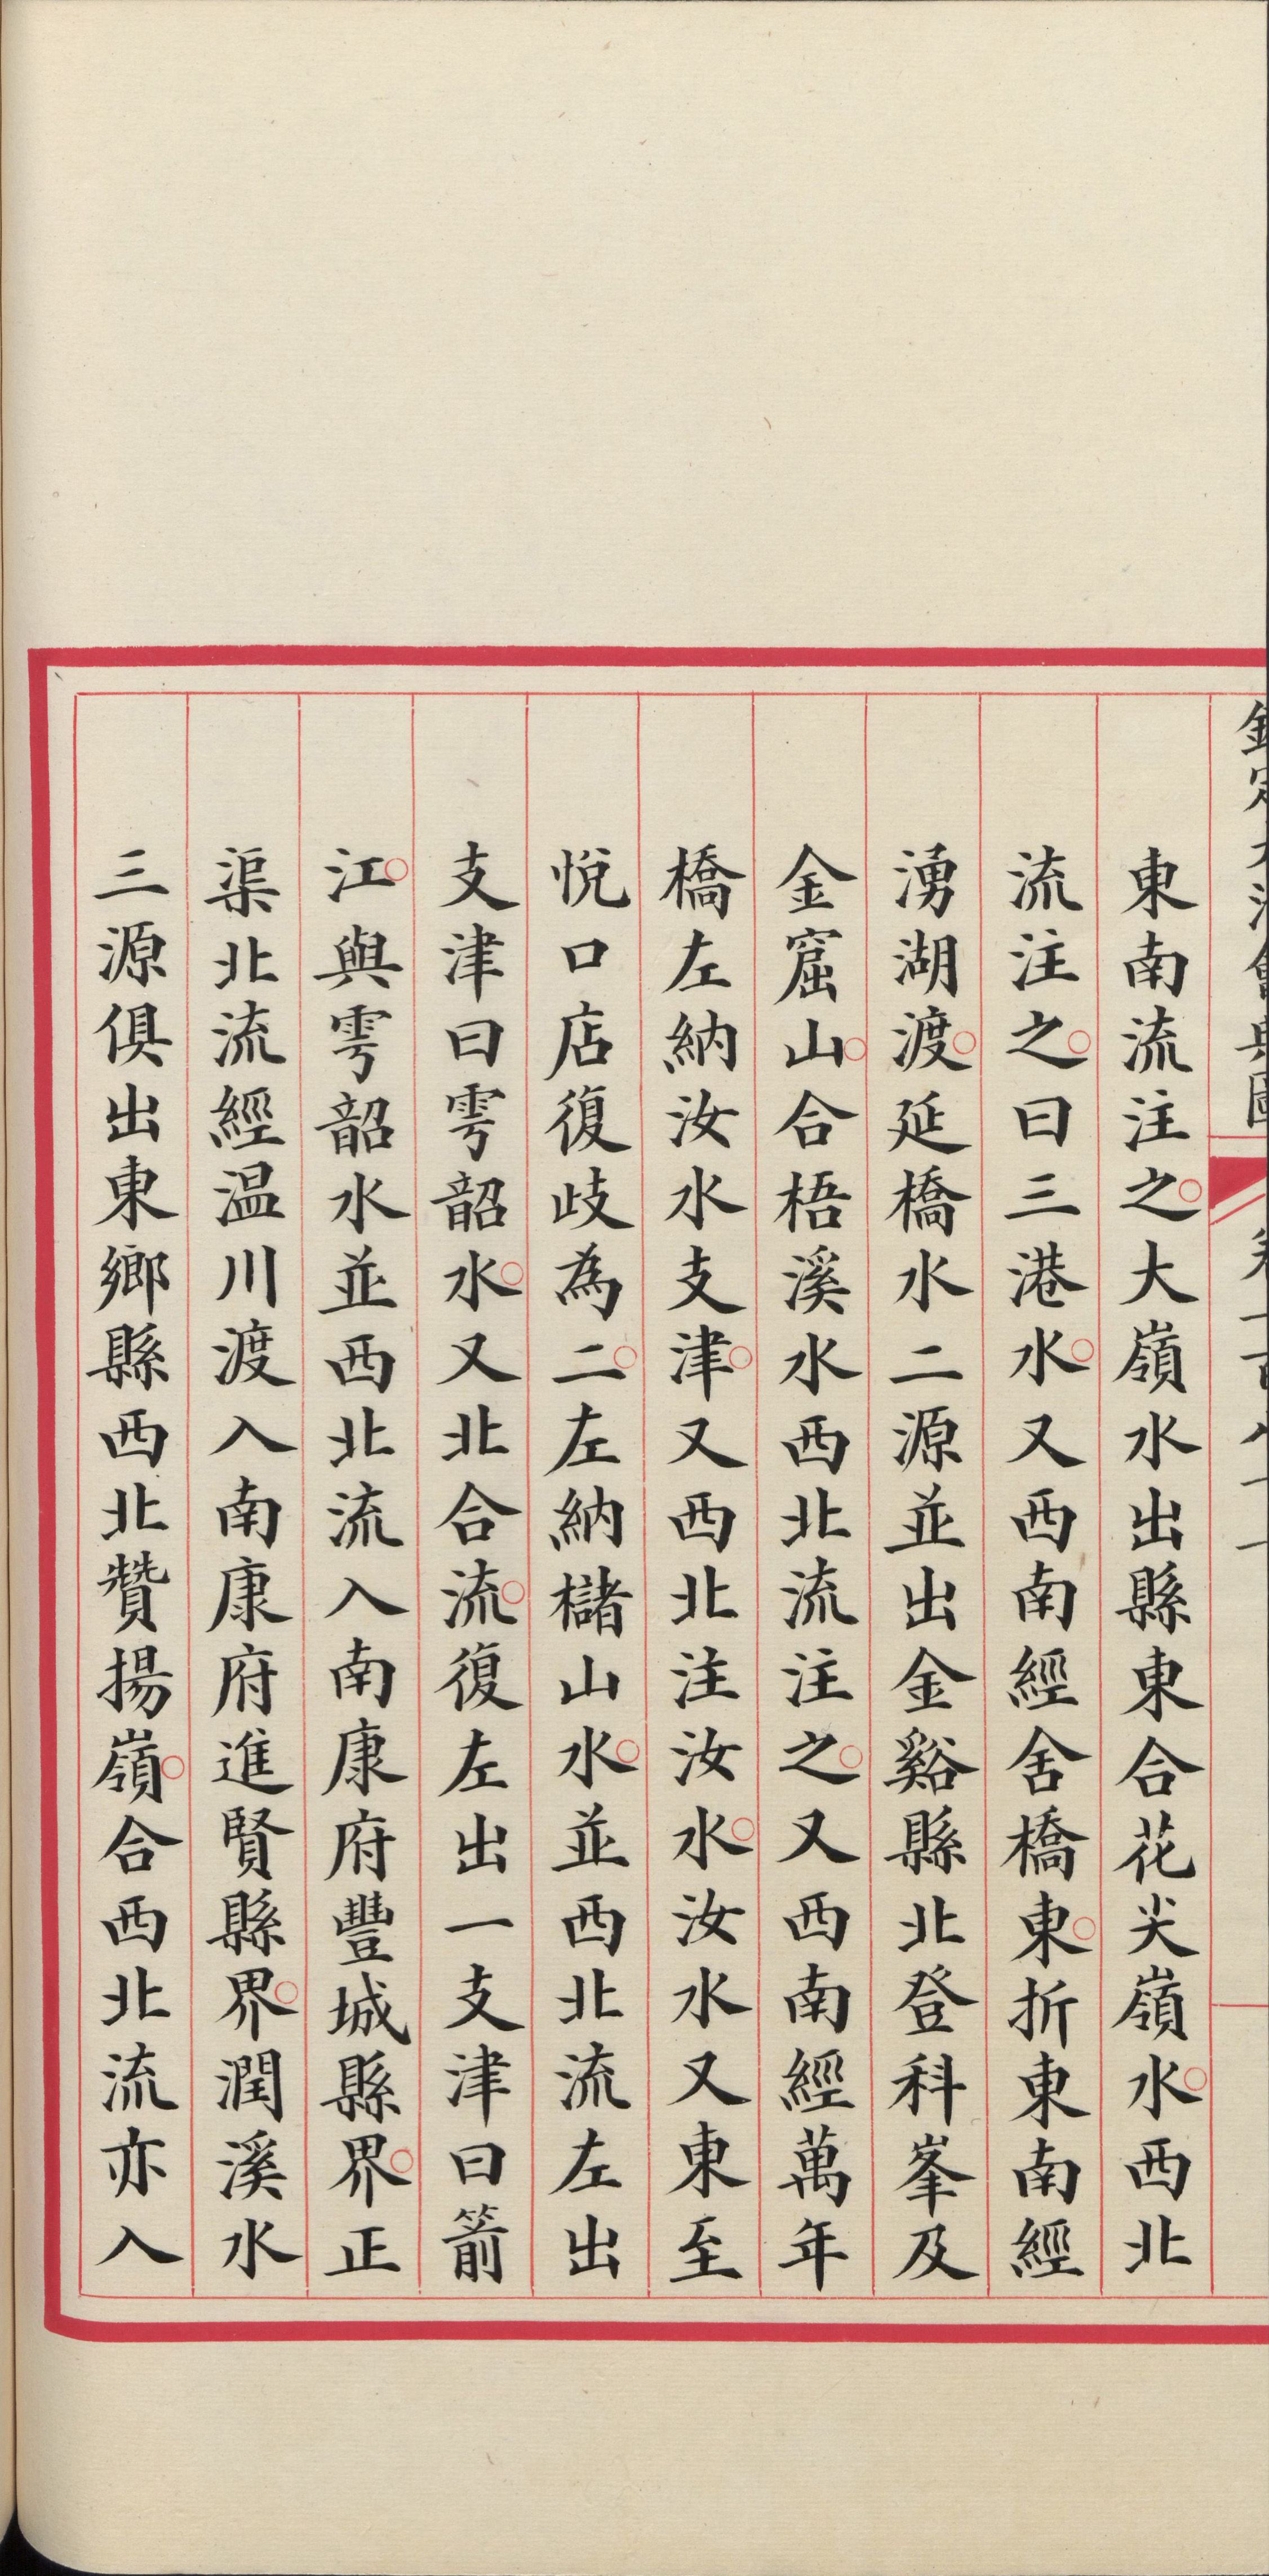 東南流注之大嶺水出縣東合花尖嶺水西北
流注之曰三港水又西南經舍橋東折東南經
湧湖渡延橋水二源並出金谿縣北登科峯及
金窟山合梧溪水西北流注之又西南經萬年
橋左納汝水支津又西北注汝水汝水又東至
悅口店復歧為二左納櫧山水並西北流左出
支津曰雩韶水又北合流復左出一支津曰箭
江與雩韶水並西北流入南康府豐城縣界正
渠北流經温川渡入南康府進賢縣界潤溪水
三源俱出東鄉縣西北贊揚嶺合西北流亦入